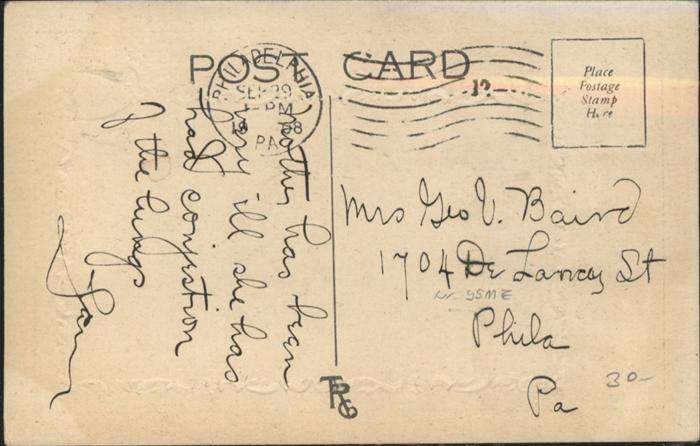 POST CARD
PHILADELPHIA
SEP 29
PM
PA
12
Place
Postage
Stamp
Here
Mother has been
very ill she has
had conjestion
of the lungs
Mrs Geo V. Baird
1704 De Lancey St
Phila
Pa
30-